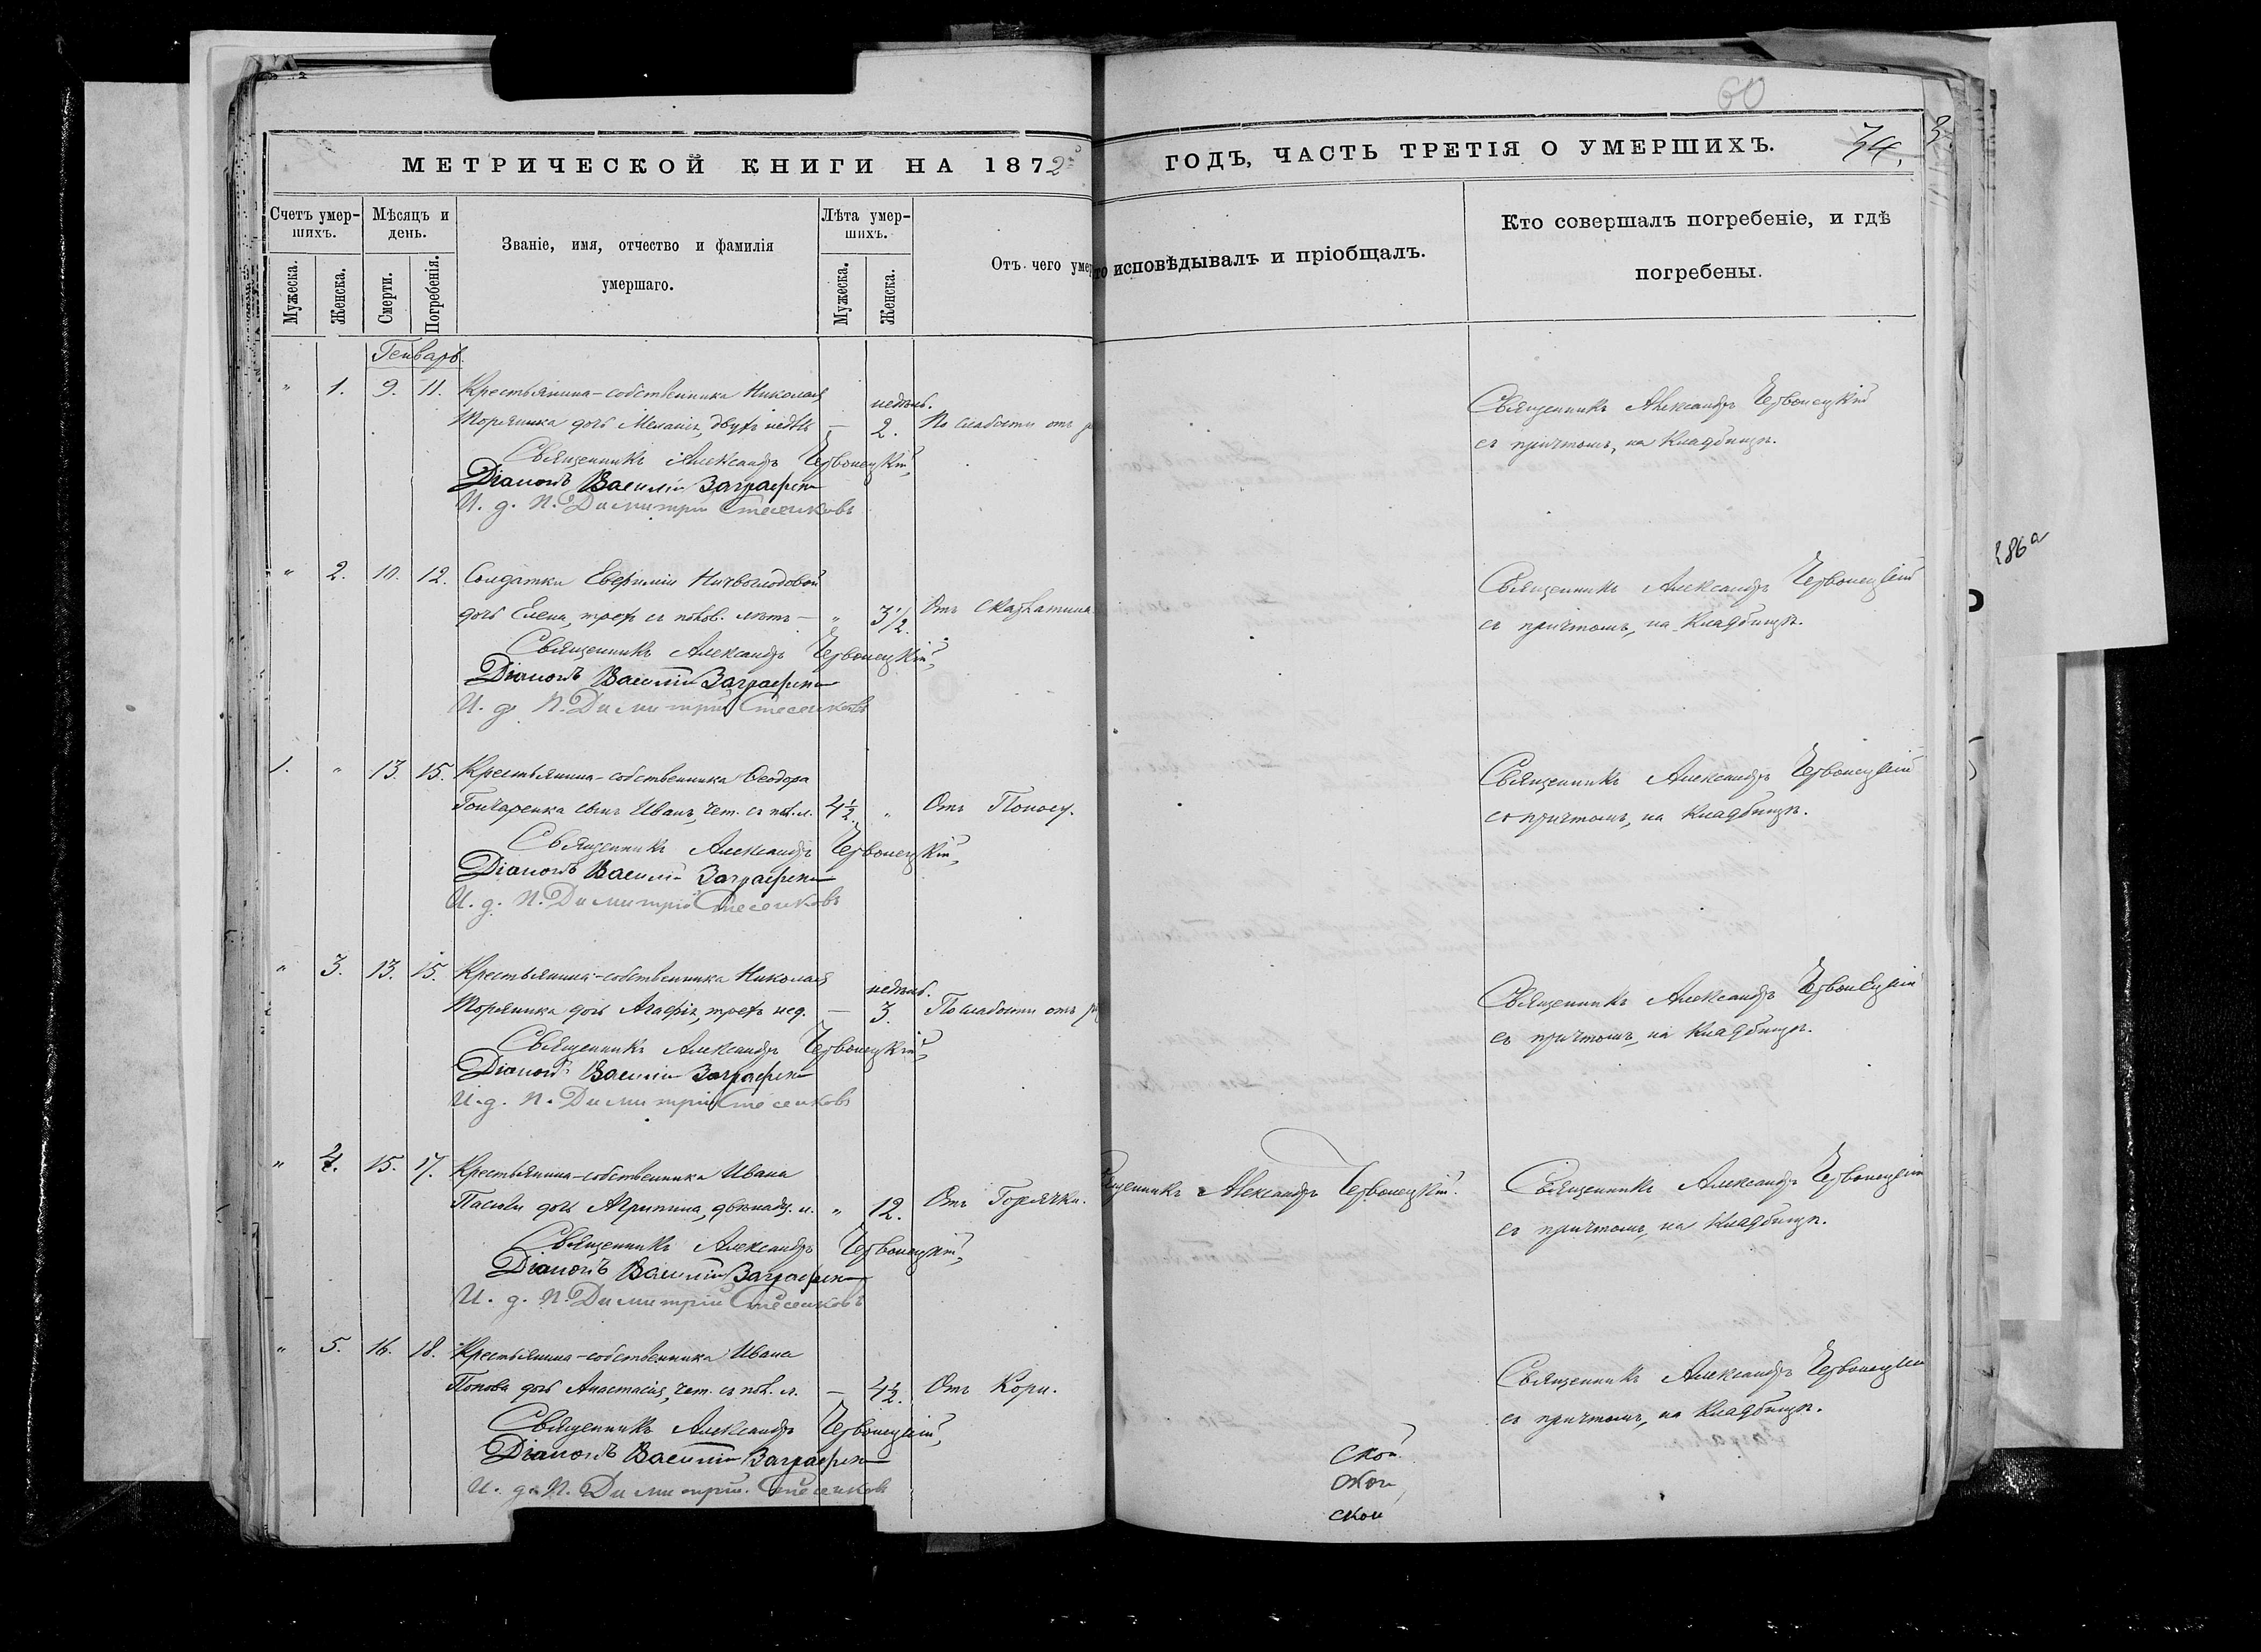 60
МЕТРИЧЕСКОЙ КНИГИ НА 1872
ГОДЪ, ЧАСТЬ ТРЕТІЯ О УМЕРШИХЪ.
74.
Счетъ умер-
шихъ.
Мѣсяцъ и
день.
Званіе, имя, отчество и фамилія
умершаго.
Лѣта умер-
шихъ.
Отъ чего умер
то исповѣдывалъ и пріобщалъ.
Кто совершалъ погребеніе, и гдѣ
погребены.
Мужеска.
Женска.
Смерти.
Погребенія.
Мужеска.
Женска.
Генварь.
" 1. 9. 11. Крестьянина-собственника Николая
недѣль.
Торяника дочь Меланія, двухъ недѣль — 2. По слабости отъ р
Священникъ Александръ Червонецкій,
Діаконъ Василій
И. д. П. Димитрій Стесенковъ
Священникъ Александръ Червонецкій
съ причтомъ, на Кладбищѣ.
" 2. 10. 12. Солдатки Евфиміи
дочь Елена, трехъ съ полов. лѣтъ — " 3 1/2. Отъ Скарлатина.
Священникъ Александръ Червонецкій,
Діаконъ Василій
И. д. П. Димитрій Стесенковъ
Священникъ Александръ Червонецкій
съ причтомъ, на Кладбищѣ.
1. " 13. 15. Крестьянина-собственника Ѳеодора
Гончаренка сынъ Иванъ, чет. съ пол. л. 4 1/2. " Отъ Поносу.
Священникъ Александръ Червонецкій,
Діаконъ Василій
И. д. П. Димитрій Стесенковъ
Священникъ Александръ Червонецкій
съ причтомъ, на Кладбищѣ.
" 3. 13. 15. Крестьянина-собственника Николая
недѣль.
Торяника дочь Агафія, трехъ нед. — 3. По слабости отъ р
Священникъ Александръ Червонецкій,
Діаконъ Василій
И. д. П. Димитрій Стесенковъ
Священникъ Александръ Червонецкій
съ причтомъ, на Кладбищѣ.
" 4. 15. 17. Крестьянина-собственника Ивана
дочь Агрипина, двѣнадц. л. " 12. Отъ Горячки.
Священникъ Александръ Червонецкій,
Діаконъ Василій
И. д. П. Димитрій Стесенковъ
щенникъ Александръ Червонецкій.
Священникъ Александръ Червонецкій
съ причтомъ, на Кладбищѣ.
" 5. 16. 18. Крестьянина-собственника Ивана
Попова дочь Анастасія, чет. съ пол. л. — 4 1/2. Отъ Кори.
Священникъ Александръ Червонецкій,
Діаконъ Василій
И. д. П. Димитрій Стесенковъ
Священникъ Александръ Червонецкій
съ причтомъ, на Кладбищѣ.
ской
ской
ской
286а